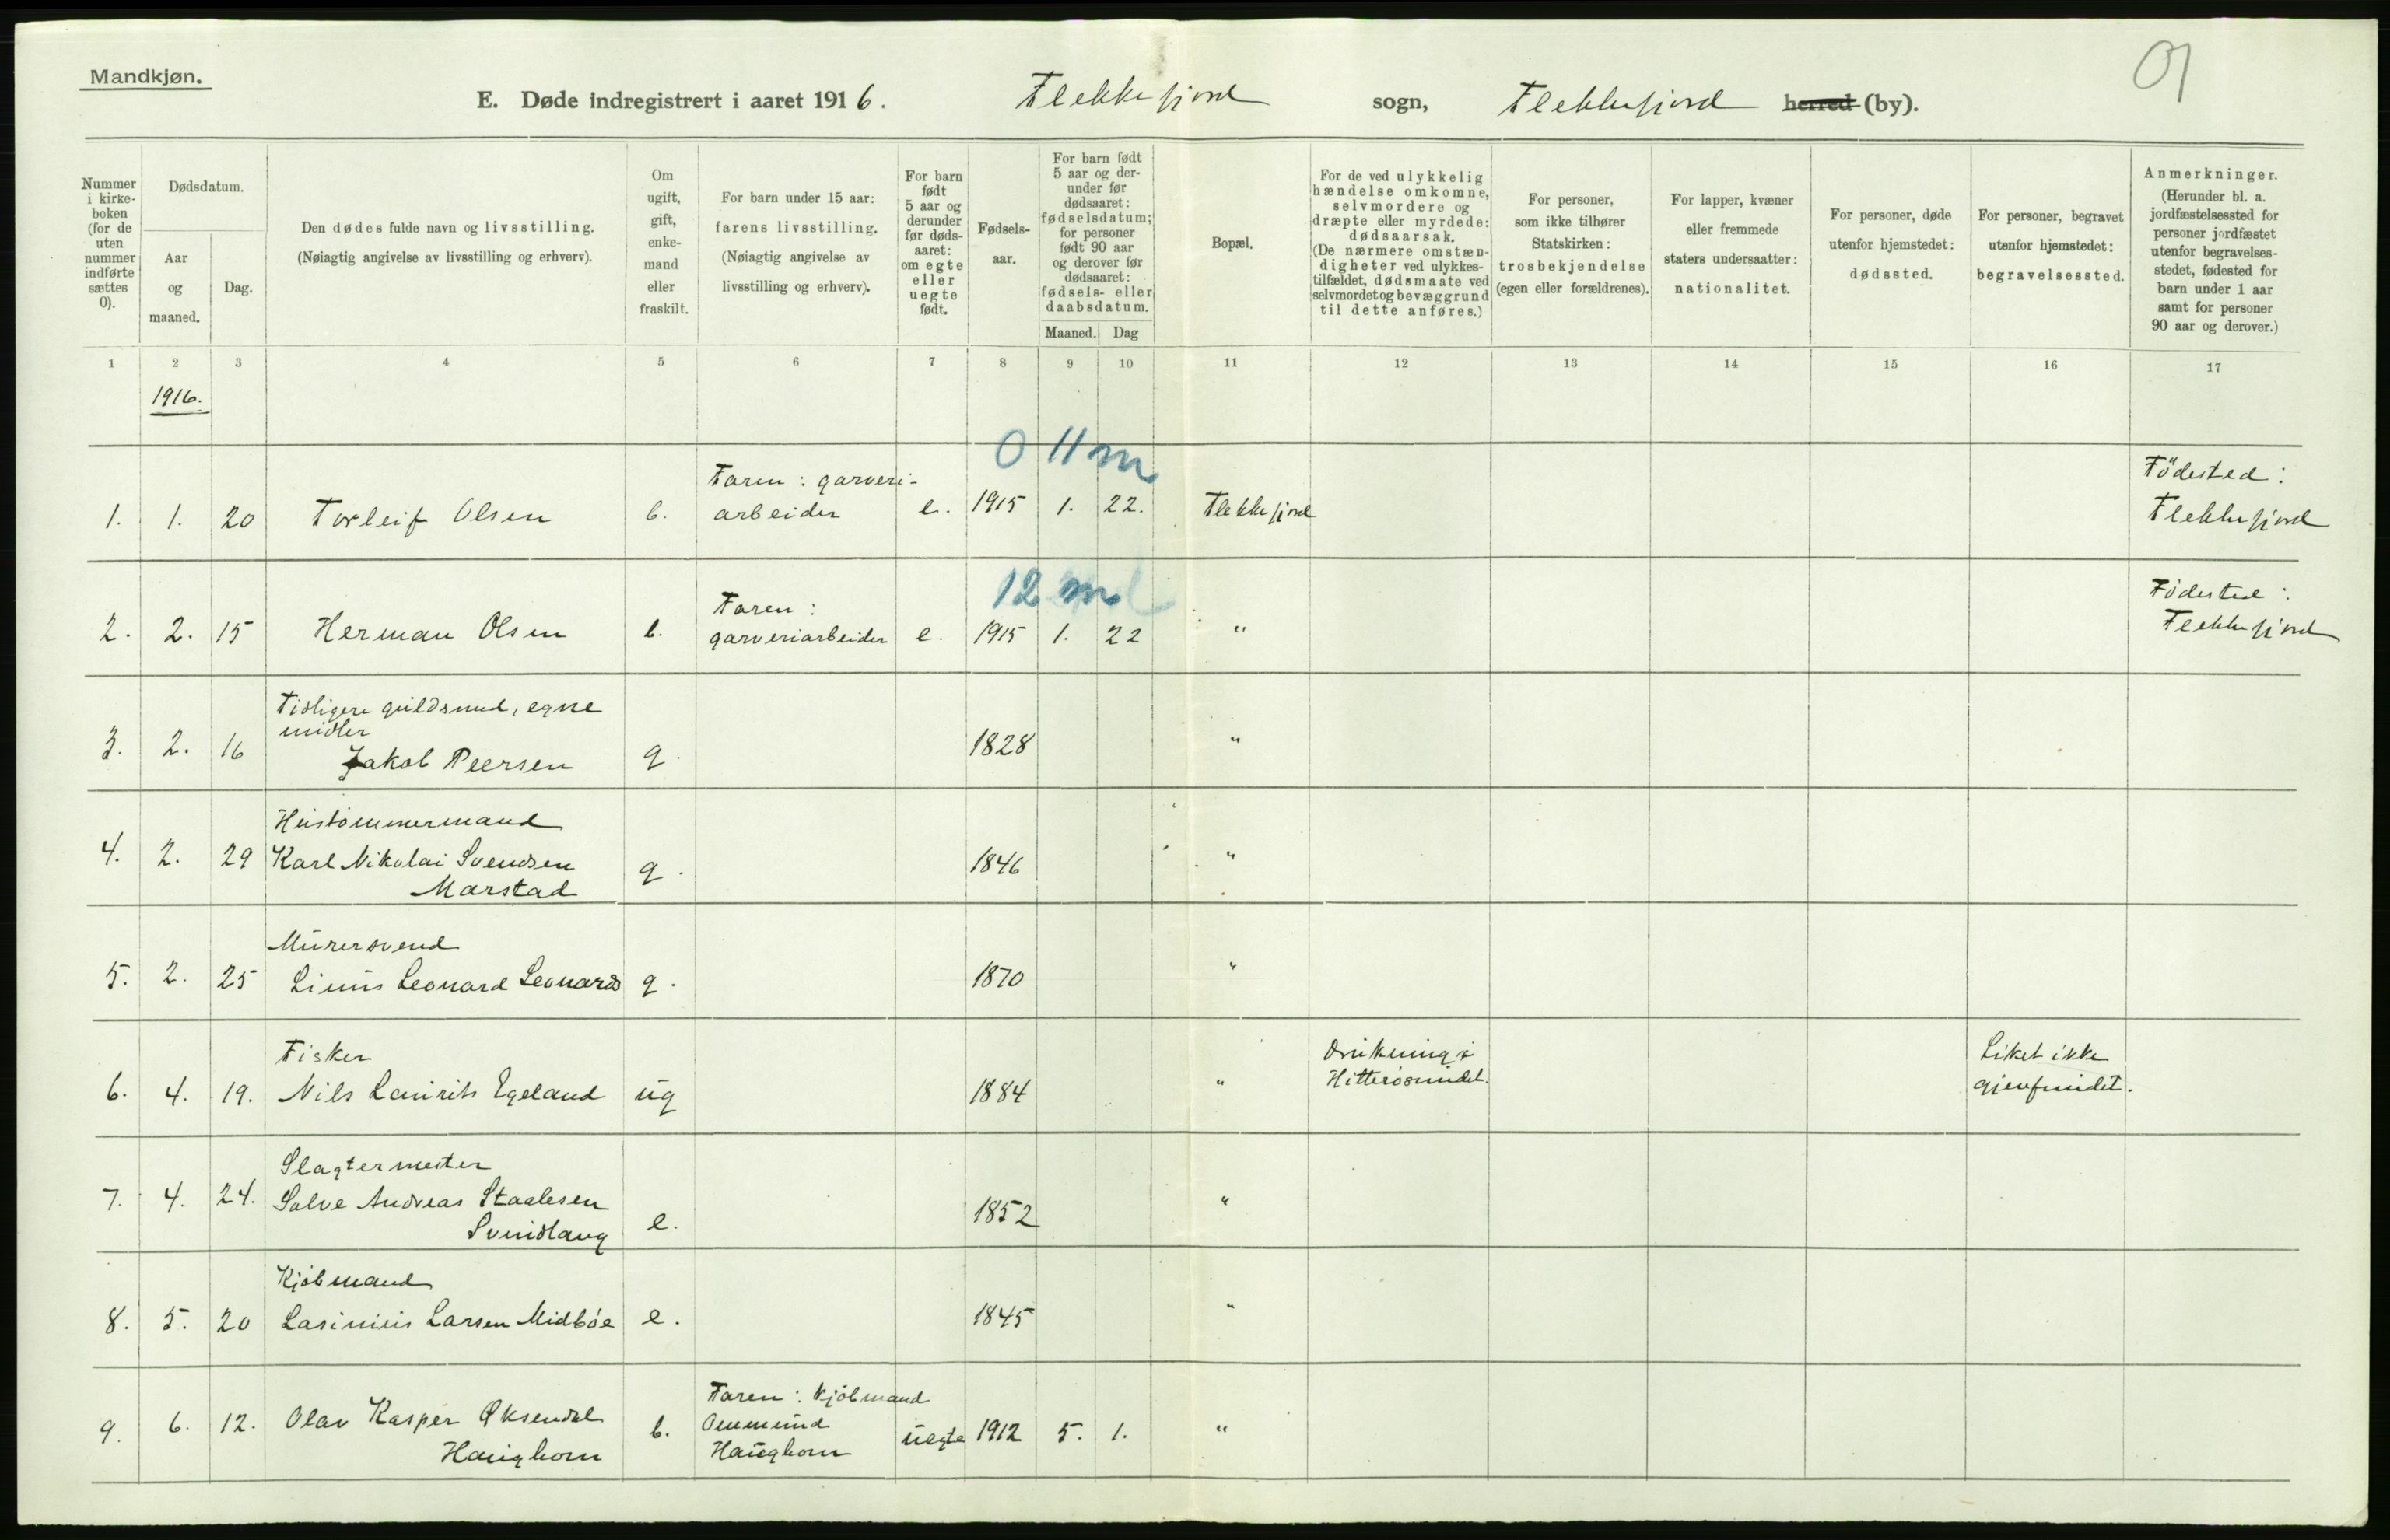 Mandkjøn.
E. Døde indregistrert i aaret 1916. Flekkefjord sogn, Flekkefjord herred (by).
Nummer i kirkeboken (for de uten nummer indførte sættes 0).
Dødsdatum.
Aar og maaned.
Dag.
Den dødes fulde navn og livsstilling.
(Nøiagtig angivelse av livsstilling og erhverv).
Om ugift, gift, enkemand eller fraskilt.
For barn under 15 aar:
farens livsstilling.
(Nøiagtig angivelse av livsstilling og erhverv).
For barn født 5 aar og derunder før dødsaaret: om egte eller uegte født.
Fødselsaar.
For barn født 5 aar og derunder før dødsaaret: fødselsdatum; for personer født 90 aar og derover før dødsaaret: fødsels- eller daabsdatum.
Maaned. Dag
Bopæl.
For de ved ulykkelig hændelse omkomne, selvmordere og dræpte eller myrdede: dødsaarsak.
(De nærmere omstændigheter ved ulykkestilfældet, dødsmaate ved selvmordet og bevæggrund til dette anføres.)
For personer, som ikke tilhører Statskirken: trosbekjendelse (egen eller forældrenes).
For lapper, kvæner eller fremmede staters undersaatter: nationalitet.
For personer, døde utenfor hjemstedet: dødssted.
For personer, begravet utenfor hjemstedet: begravelsessted.
Anmerkninger.
(Herunder bl. a. jordfæstelsessted for personer jordfæstet utenfor begravelsesstedet, fødested for barn under 1 aar samt for personer 90 aar og derover.)
1 2 3 4 5 6 7 8 9 10 11 12 13 14 15 16 17
1916.
0 11 m
Faren: garveri- Födested:
1. 1. 20 Torleif Olsen b. arbeider e. 1915 1. 22. Flekkefjord Flekkefjord
12 m
Faren: Födested:
2. 2. 15 Herman Olsen b. garveriarbeider e. 1915 1. 22 " Flekkefjord
Tidligere guldsmed, egne
midler
3. 2. 16 Jakob Peersen g. 1828 "
Hustömmermand
4. 2. 29 Karl Nikolai Svendsen g. 1846 "
Marstad
Murersvend
5. 2. 25 Linus Leonard Leonards g. 1870 "
Fisker Drukning i Liket ikke
6. 4. 19. Nils Laurits Egeland ug 1884 " Hitterösundet. gjenfundet.
Slagtermester
7. 4. 24. Salve Andreas Staalesen e. 1852 "
Svindlaug
Kjöbmand
8. 5. 20 Larsen Midböe e. 1845 "
Faren: Kjöbmand
9. 6. 12. Olav Kasper Øksendal b. Ommund uegte 1912 5. 1. "
Haughom Haughom